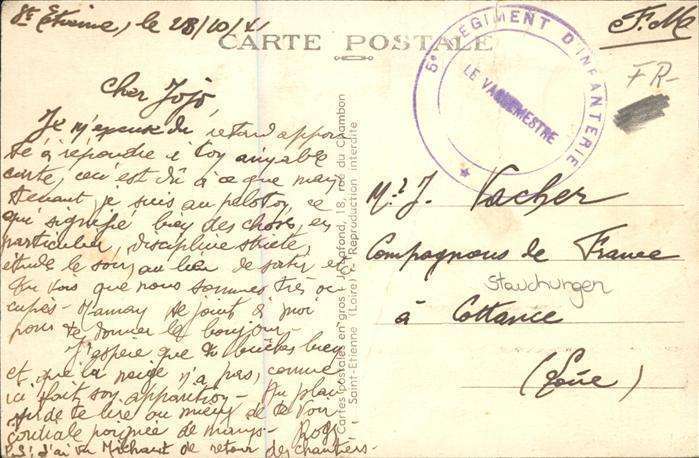 St Etienne, le 28/10/41
CARTE POSTALE
F.M
FR-
5e REGIMENT D'INFANTERIE
LE VAGUEMESTRE
Cher Jojo
Je m'excuse du retard appor
té à répondre à toy aimable
carte, ceci est dû à ce que main
tenant, je suis au peloton, ce
qui signifie bien des choses en
particulier, discipline stricte,
étude le soir au lieu de sortir et
tu vois que nous sommes très oc
cupés - Mamay se joint à moi
pour te donner le bonjour -
J'espère que tu bûches bien
et que la neige n'a pas, comme
ici fait son apparition - Au plai
sir de te lire ou mieux de te voir
cordiale poignée de mains - Roger
P.S: J'ai vu Michaut de retour des chantiers -
Cartes postales en gros - Lafond, 18, rue du Chambon
Saint-Etienne (Loire) - Reproduction interdite
Mr J. Vacher
Compagnons de France
Stauchungen
à Cottance
(Loire)